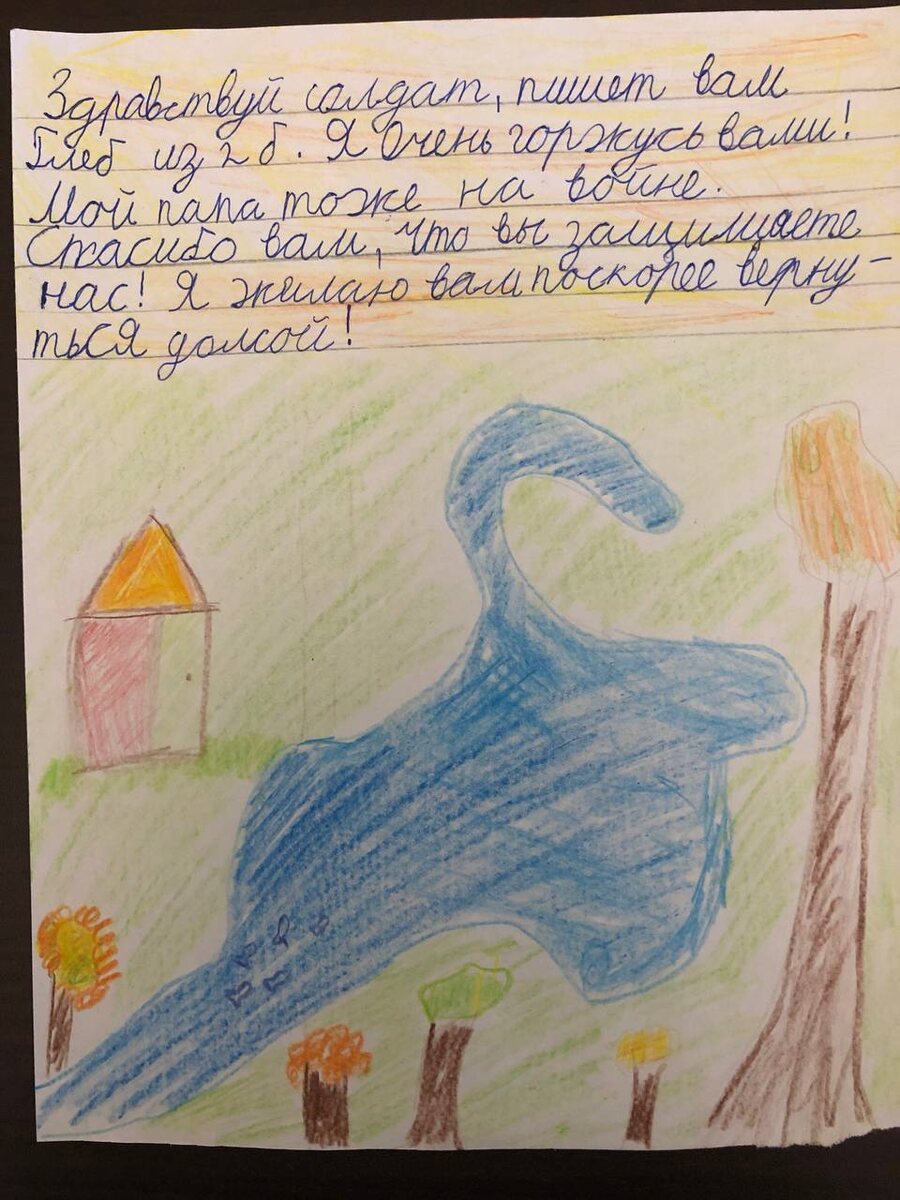 Здравствуй солдат, пишет вам
Глеб из 2 б. Я Очень горжусь вами!
Мой папа тоже на войне.
Спасибо вам, что вы защищаете
нас! Я жилаю вам поскорее верну-
ться домой!